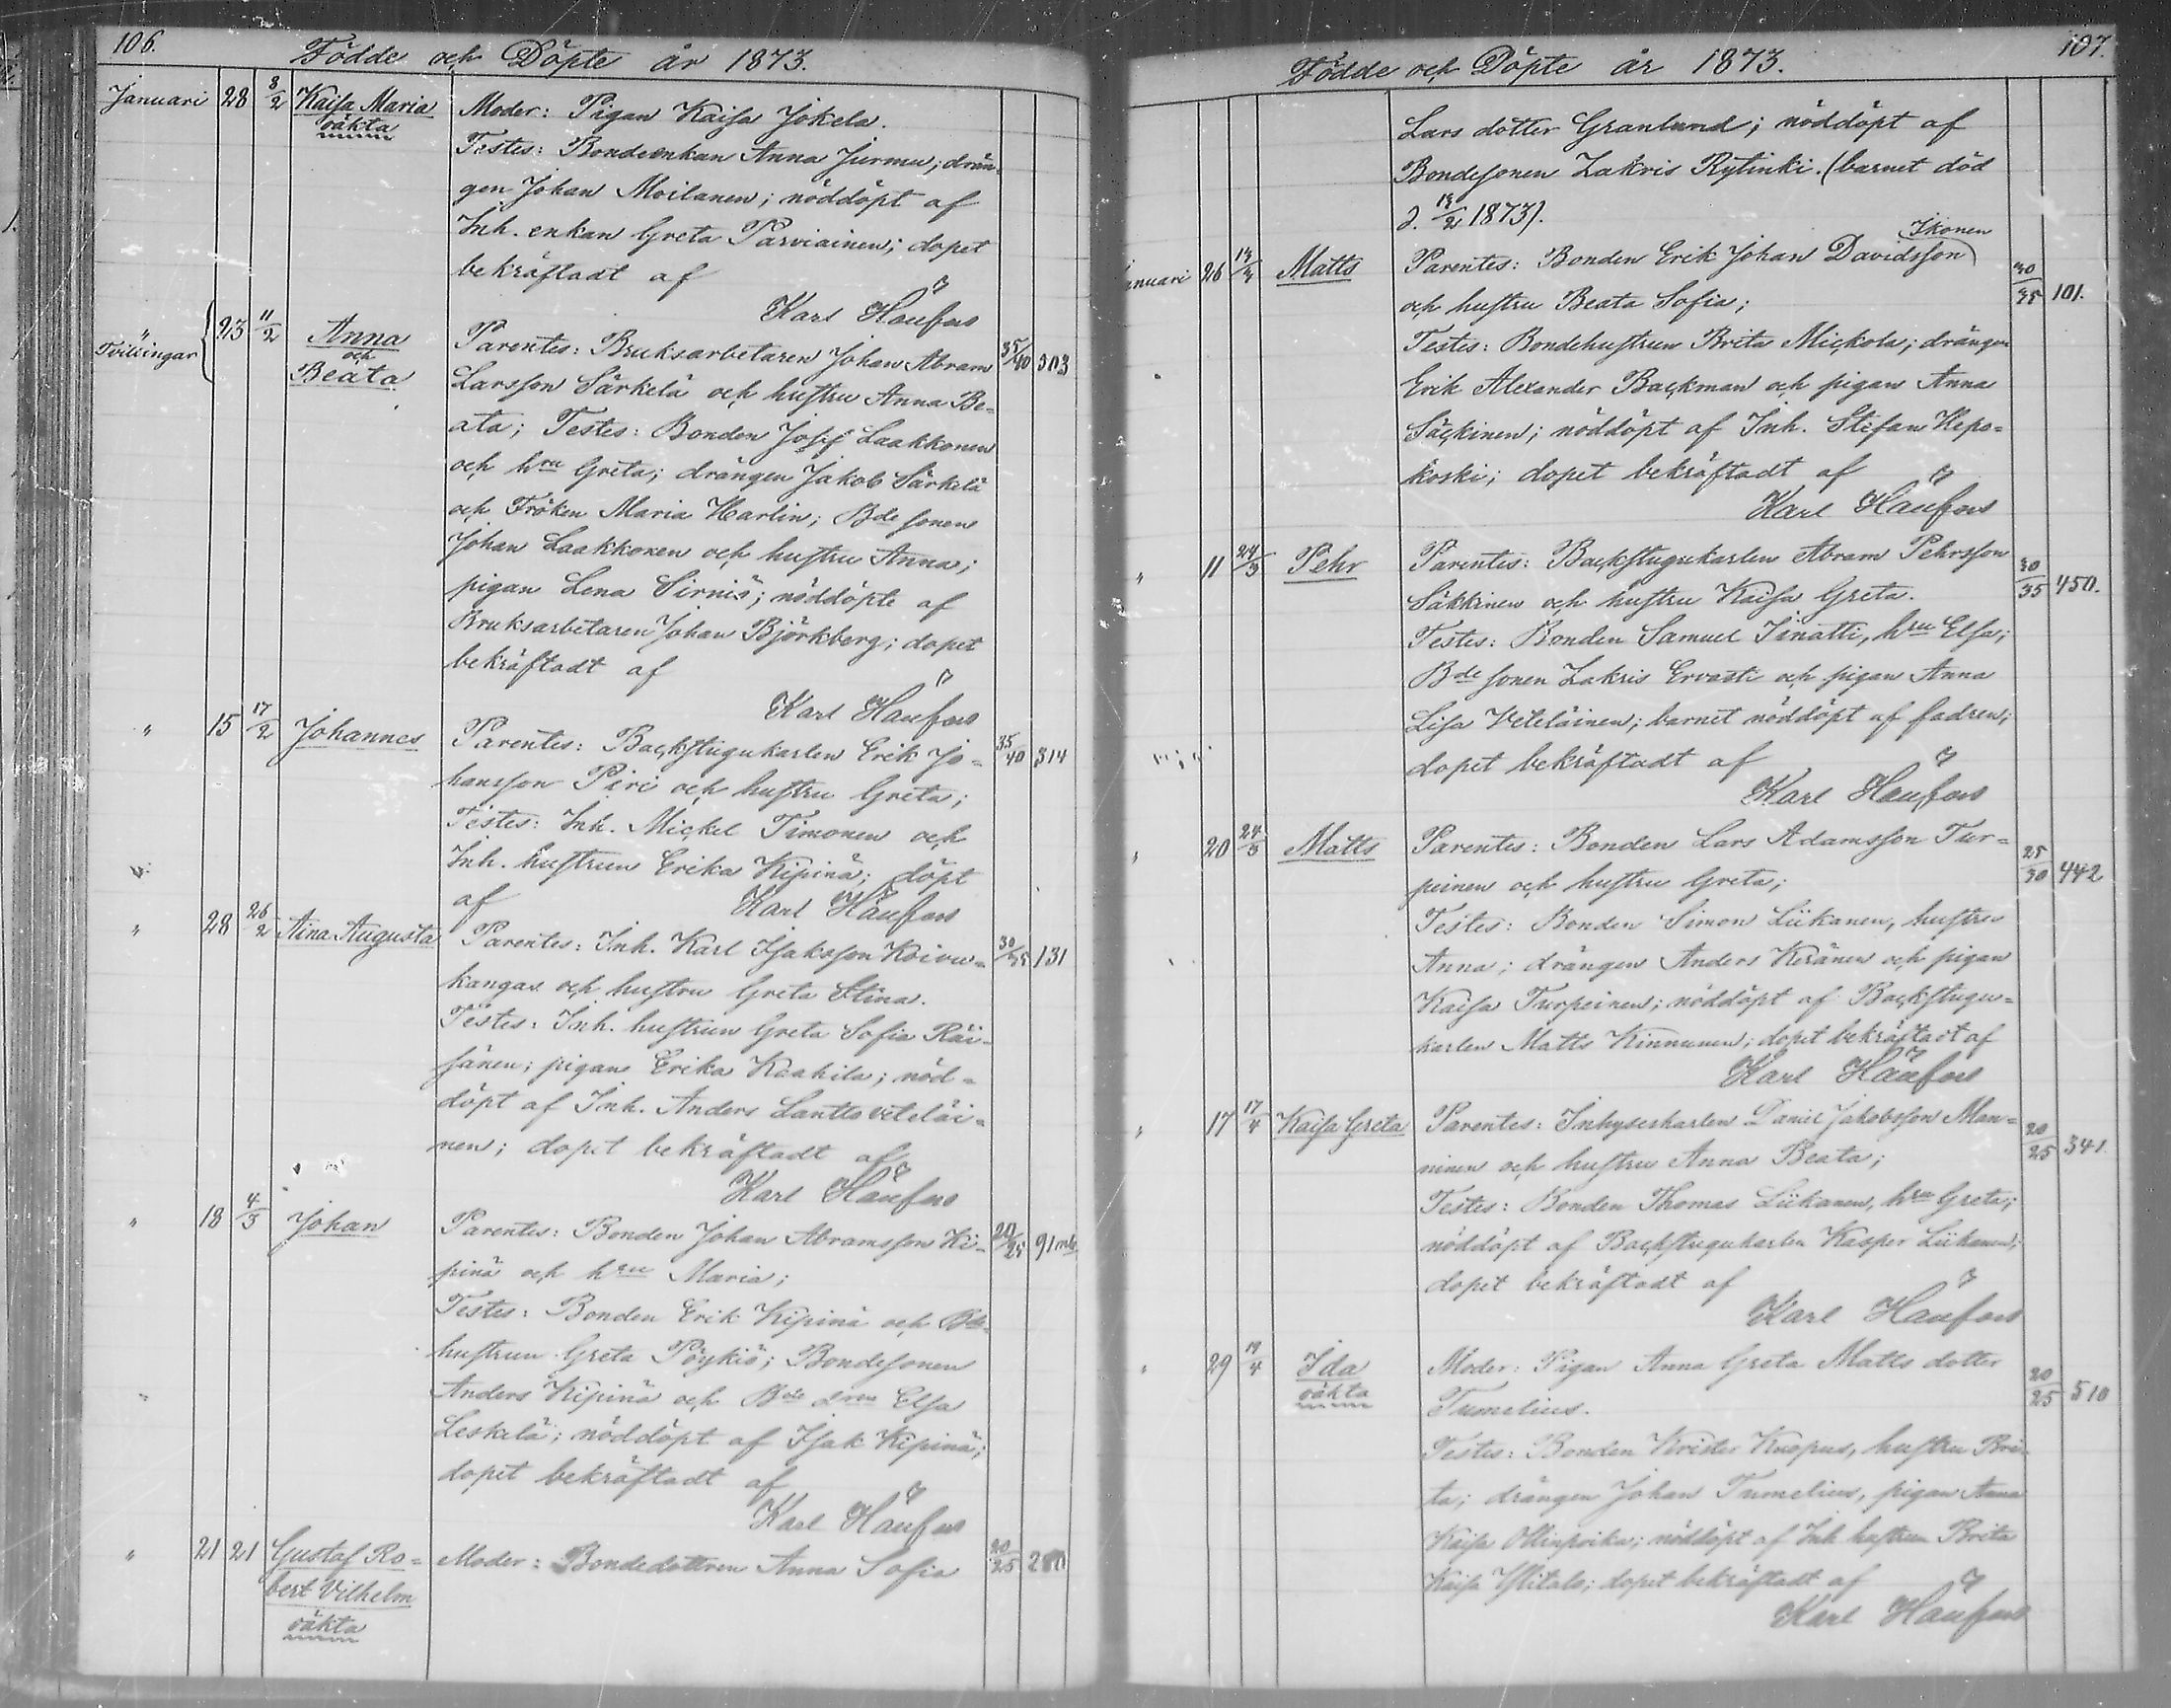 106.
Födde och Döpte år 1873.
Januari 28 8/2 Kaisa Maria Moder: Pigan Kaisa Jokela.
oäkta
Testes: Bondeenkan Anna Jurmu; drän-
gen Johan Moilanen; nöddöpt af
Inh. enkan Greta Parviainen; dopet
bekräftadt af
Karl Höufors
" Tvillingar 23 11/2 Anna Parentes: Bruksarbetaren Johan Abram 35/40 303
och
Beata Larsson Särkelä och hustru Anna Be-
ata; Testes: Bonden Josef Laakkonen
och hru Greta; drängen Jakob Särkelä
och Fröken Maria Harlin; Bde sonen
Johan Laakkonen och hustru Anna;
pigan Lena Sirniö; nöddöpte af
Bruksarbetaren Johan Björkberg; dopet
bekräftadt af
Karl Höufors
" 15 17/2 Johannes Parentes: Backstugukarlen Erik Jo- 35/40 314
hansson Piri och hustru Greta;
Testes: Inh. Mickel Timonen och
Inh. hustrun Erika Kipinä; döpt
af Karl Höufors
" 28 26/2 Aina Augusta Parentes: Inh. Karl Isaksson Koivu- 30/35 131
kangas och hustru Greta Stina.
Testes: Inh. hustrun Greta Sofia Räi-
sänen; pigan Erika Kaahila; nöd-
döpt af Inh. Anders Lantto Veteläi-
nen; dopet bekräftadt af
Karl Höufors
" 18 4/3 Johan Parentes: Bonden Johan Abramsson Ki- 20/25 91
pinä och hru Maria;
Testes: Bonden Erik Kipinä och Bde-
hustrun Greta Pöykiö; Bondesonen
Anders Kipinä och Bde drn Elsa
Leskelä; nöddöpt af Isak Kipinä;
dopet bekräftadt af
Karl Höufors
" 21 21 Gustaf Ro- Moder: Bondedottren Anna Sofia 20/25 280
bert Vilhelm
oäkta
107.
Födde och Döpte år 1873.
Lars dotter Granlund; nöddöpt af
Bondesonen Zakris Rytinki. (barnet död
d. 19/2 1873).
Ikonen
Januari 26 14/3 Matts Parentes: Bonden Erik Johan Davidsson 30/35 101.
och hustru Beata Sofia;
Testes: Bondehustrun Brita Mickola; drängen
Erik Alexander Backman och pigan Anna
Säckinen; nöddöpt af Inh. Stefan Hepo-
koski; dopet bekräftadt af
Karl Höufors
" 11 24/3 Pehr Parentes: Backstugukarlen Abram Pehrsson 30/35 450.
Säkkinen och hustru Kaisa Greta.
Testes: Bonden Samuel Jinatti, hru Elsa;
Bde sonen Zakris Ervasti och pigan Anna
Lisa Veteläinen; barnet nöddöpt af fadren;
dopet bekräftadt af
Karl Höufors
" 20 24/3 Matts Parentes: Bonden Lars Adamsson Tur- 25/30 442
peinen och hustru Greta;
Testes: Bonden Simon Liikanen, hustru
Anna; drängen Anders Keränen och pigan
Kaisa Turpeinen; nöddöpt af Backstugu-
karlen Matts Kinnunen; dopet bekräftadt af
Karl Höufors
" 17 17/4 Kaisa Greta Parentes: Inhyseskarlen Daniel Jakobsson Man- 20/25 341
ninen och hustru Anna Beata;
Testes: Bonden Thomas Liikanen, hru Greta;
nöddöpt af Backstugukarlen Kasper Liikanen;
dopet bekräftadt af
Karl Höufors
" 29 19/4 Ida Moder: Pigan Anna Greta Matts dotter 20/25 510
oäkta
Tumelius.
Testes: Bonden Krister Kuopus, hustru Bri-
ta; drängen Johan Tumelius, pigan Anna
Kaisa Ollinpoika; nöddöpt af Inh hustrun Brita
Kaisa Ylitalo; dopet bekräftadt af
Karl Höufors